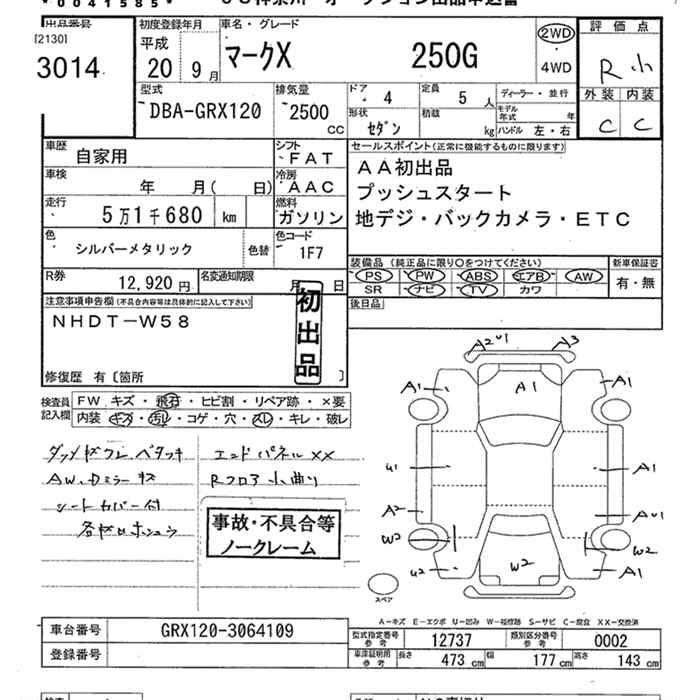 *00041585*
出品番号
[2130]
3014
初度登録年月
平成
20 9月
車名・グレード
マークX 250G
2WD
4WD
評価点
R 小
外装 内装
C C
型式
DBA-GRX120
排気量
2500
CC
ドア
4
定員
5人
形状
セダン
積載
kg
ディーラー・並行
モデル年式 年
ハンドル 左・右
車歴
自家用
車検
年 月( 日)
走行
5万1千680 km
色
シルバーメタリック
色替
シフト
FAT
冷房
AAC
燃料
ガソリン
色コード
1F7
セールスポイント(正常に機能するものに限ります)
AA初出品
プッシュスタート
地デジ・バックカメラ・ETC
装備品(純正品に限り〇をつけてください)
PS PW ABS エアB AW
SR ナビ TV カワ
新車保証書
有・無
後日品
R券
12,920円
名変通知期限
月 日
注意事項申告欄(不具合内容等は具体的に記入して下さい)
NHDT-W58
初出品
修復歴 有〔箇所 〕
検査員記入欄
FW キズ・飛石・ヒビ割・リペア跡・×要
内装 キズ・汚レ・コゲ・穴・スレ・キレ・破レ
ベタツキ
エンドパネル××
AW、Dミラーキズ
Rフロア小曲り
シートカバー付
事故・不具合等
ノークレーム
A2U1 A3
A1 A1 A1
U1 A1
A2 AU1
W2 W2
U2 W2 A1
スペア
A-キズ E-エクボ U-凹み W-補修跡 S-サビ C-腐食 XX-交換済
車台番号
GRX120-3064109
登録番号
型式指定番号 参考
12737
類別区分番号 参考
0002
車庫証明用 参考
長さ 473cm
幅 177cm
高さ 143cm